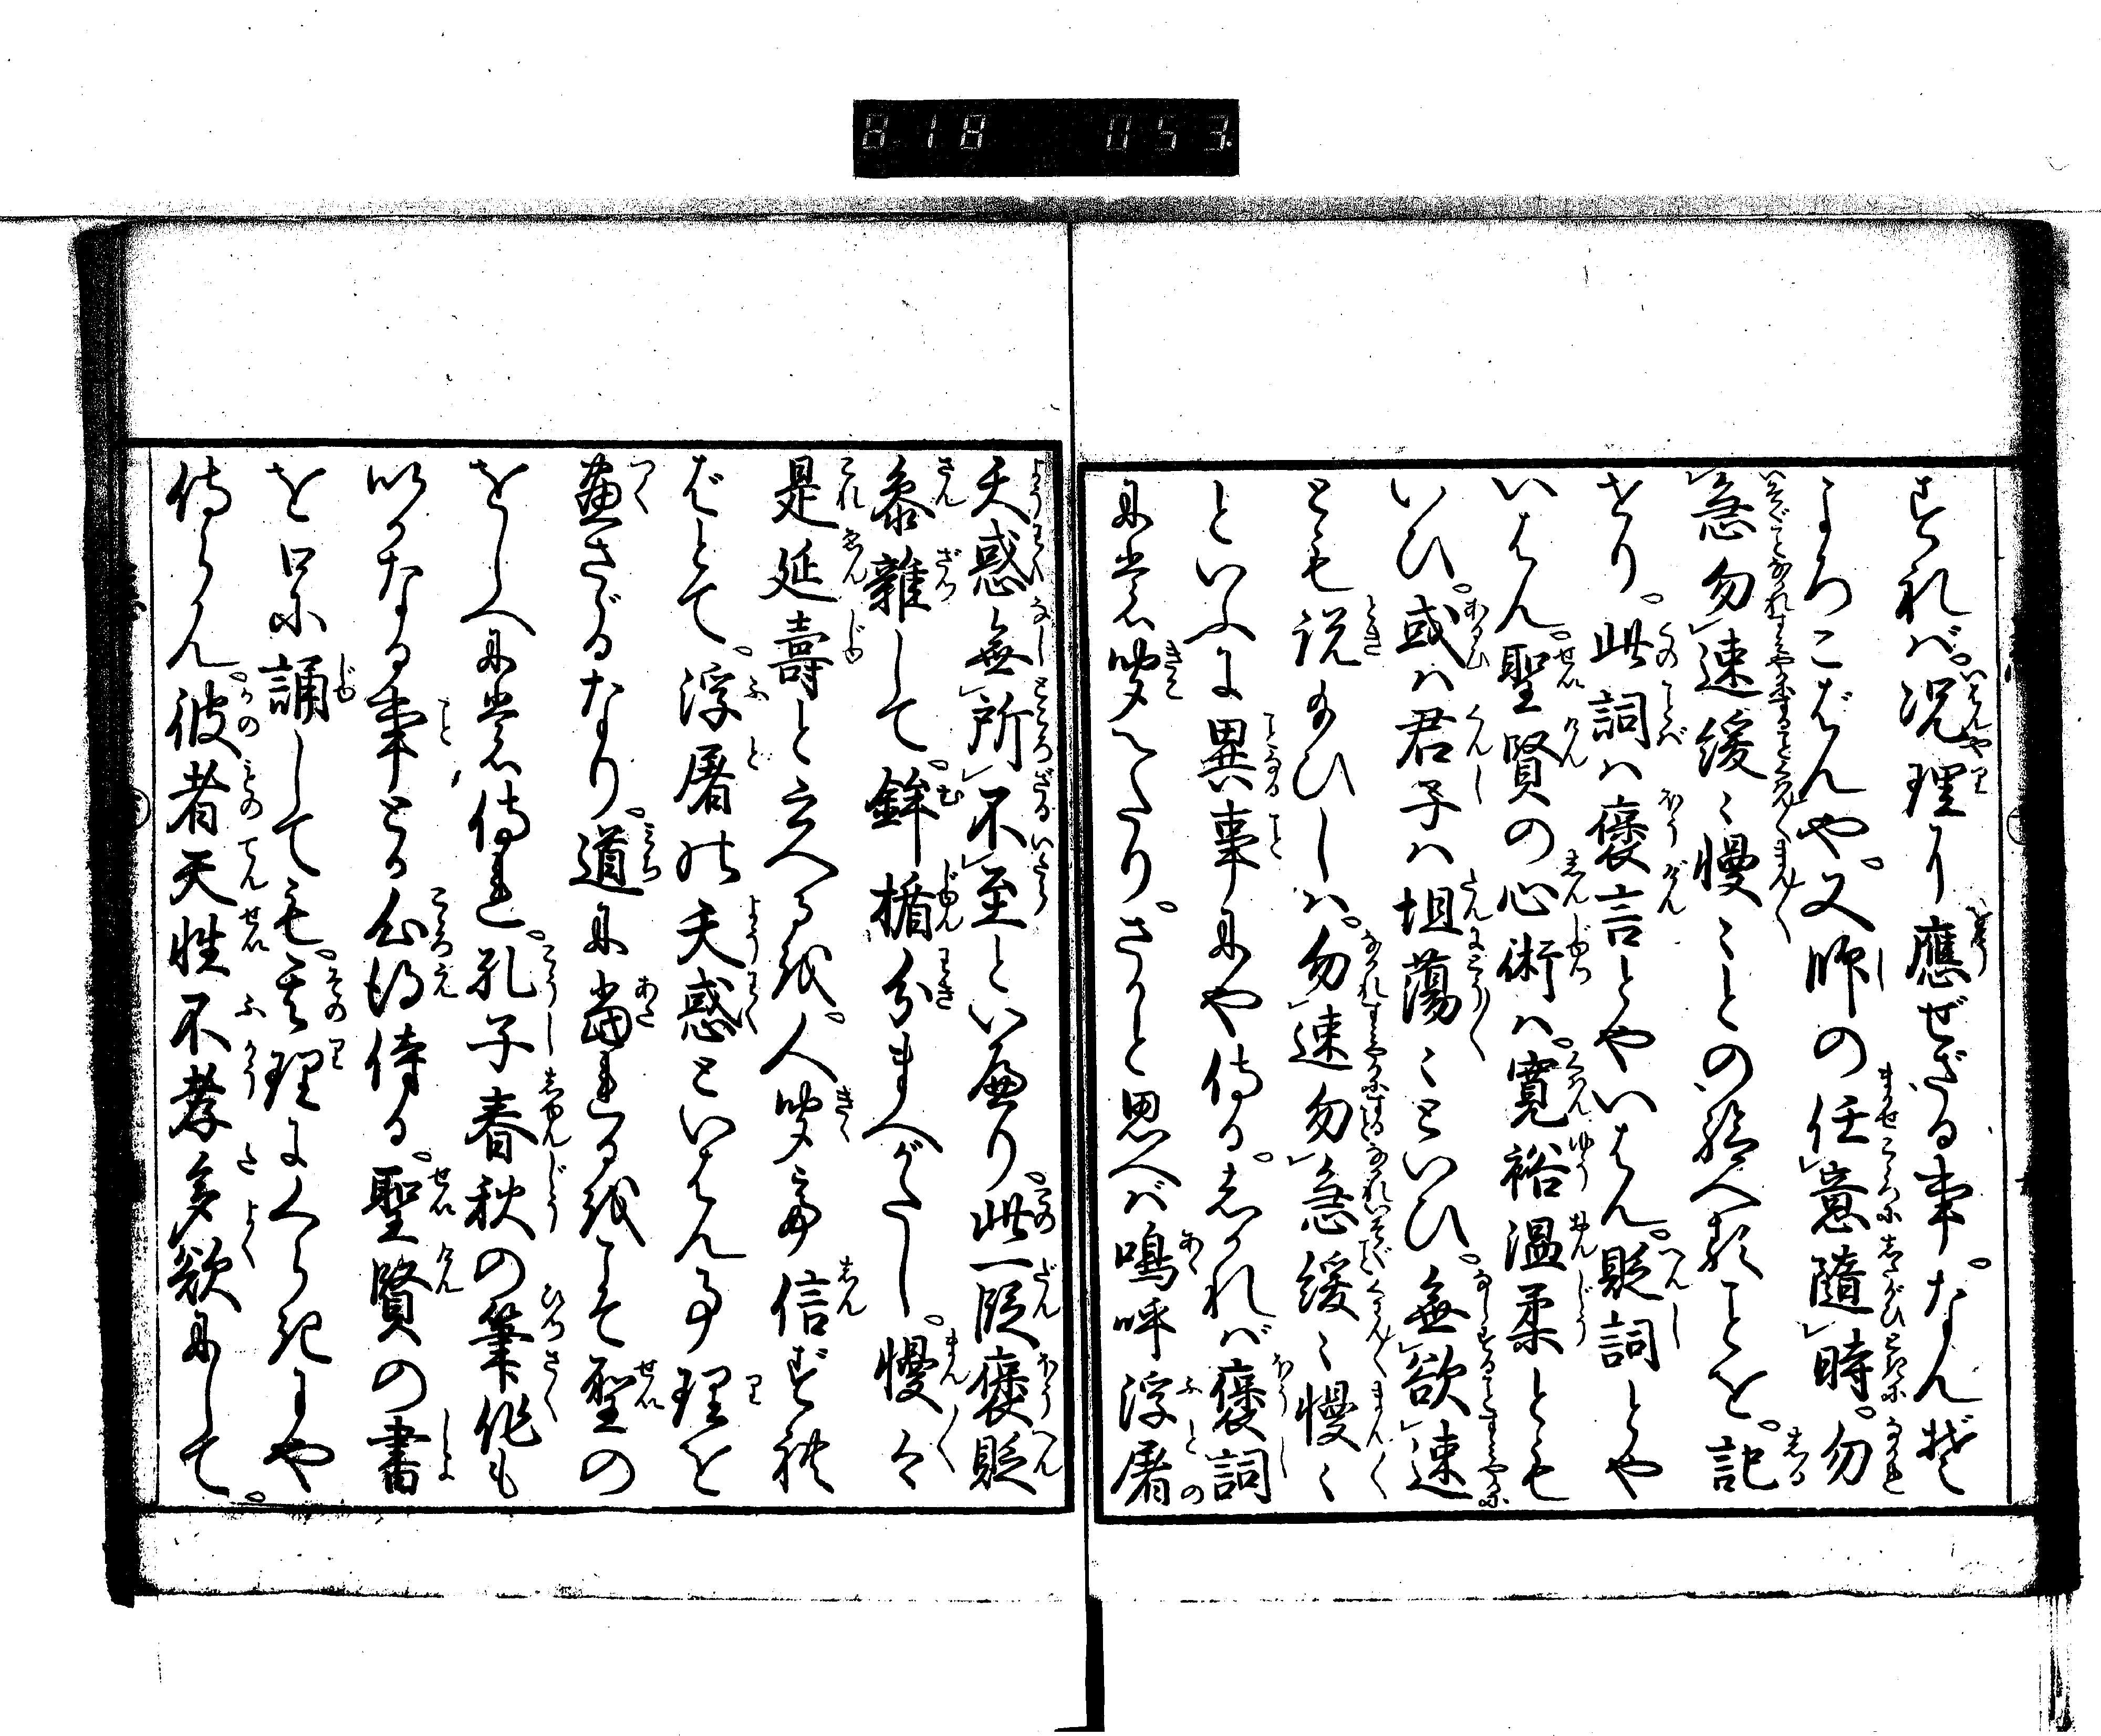 818 053
それば。況理り應ぜざる事。なんぞ
よろこばんや。又師の任意隨時。勿
急勿速緩〻慢〻との給へることを。記
せり。此詞ハ褒言とやいはん。貶詞とや
いはん。聖賢の心術ハ。寛裕温柔とも
いひ。或ハ君子ハ坦蕩〻といひ。無欲速
とも説給ひしハ。勿速勿急緩〻慢〻
といふに異事にや侍る。しかれバ褒詞
に当聞へたり。さかと思へバ嗚呼浮屠
夭惑無所不至といへり。此一段褒貶
参雜して。鉾楯分まへがたし。慢々
是延壽と云へるを。人聞て信ずれ
ばとて。浮屠の夭惑といはん事理を
盡さゞるなり。道に當れるをこそ聖の
をしへに当侍れ。孔子春秋の筆作も
いかなる事とか心得侍る。聖賢の書
を口に誦しても。其理にくらきにや
侍らん。彼者天性不孝多欲にして。